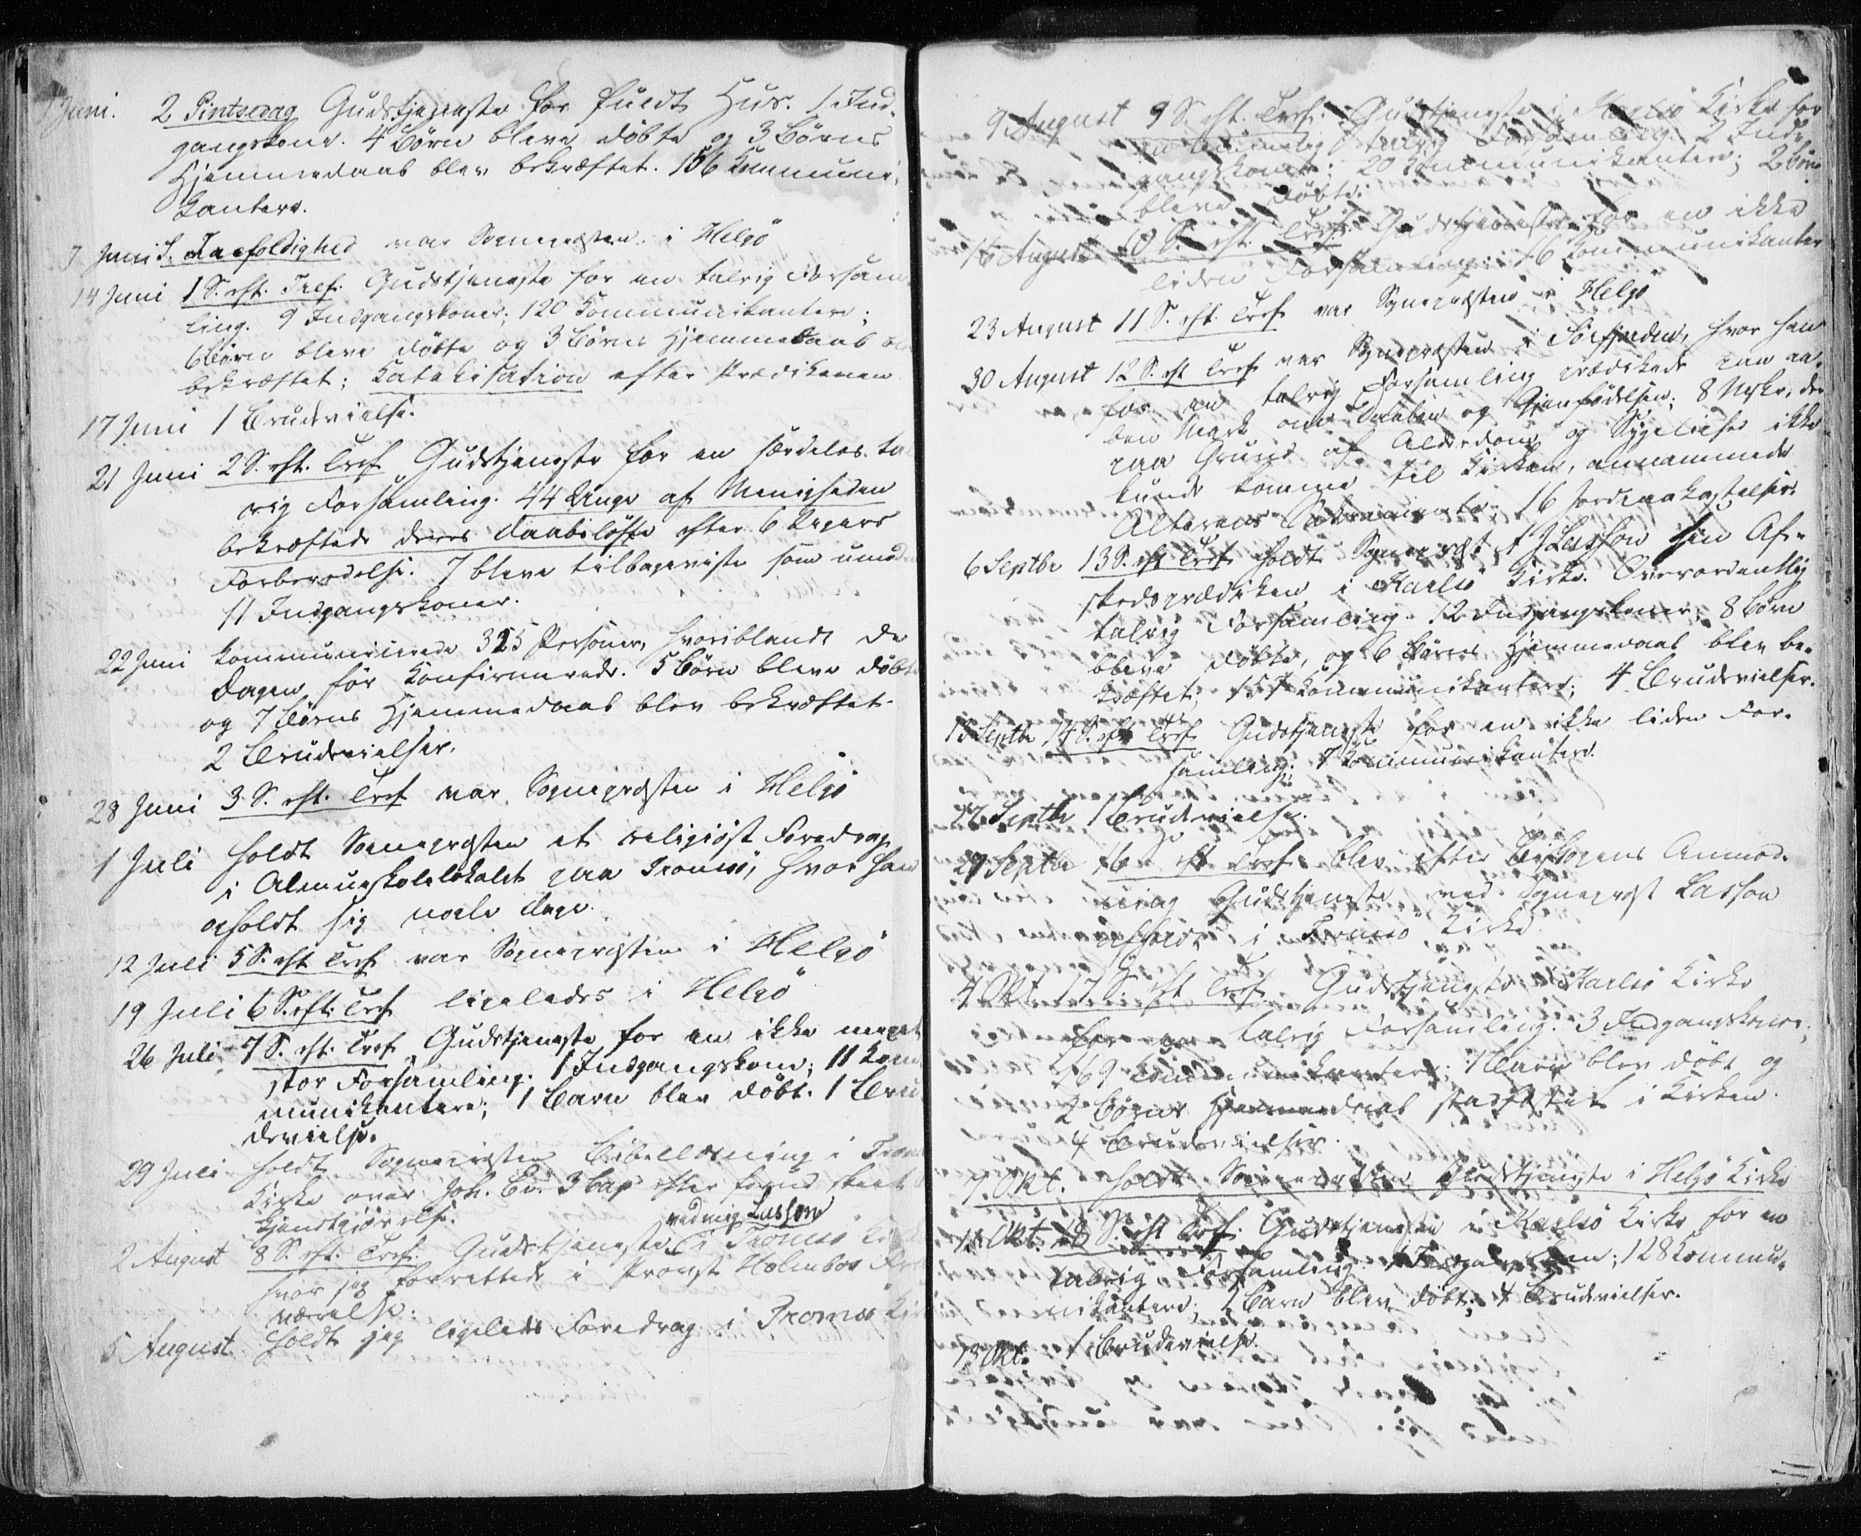 1 Juni. 2 Pintsedag Gudstjeneste for fuldt Hus. 1 Ind-
gangskone. 4 Børn bleve døbte og 3 Børns
Hjemmedaab blev bekræftet. 156 Kommuni-
kantere.
7 Juni S. Trefoldighed var Sognepræsten i Helgö
14 Juni 1 S. eft. Tref. Gudstjeneste for en talrig Forsam
ling. 9 Indgangskoner; 120 Kommunikantere;
6 Børn bleve døbte og 3 Børns Hjemmedaab
bekræftet; Katekisation efter Prædikenen
17 Juni 1 Brudevielse.
21 Juni 2 S. eft. Tref Gudstjeneste for en særdeles tal
rig Forsamling. 44 Unge af Menigheden
bekræftede deres Daabsløfte efter 6 Ugers
Forberedelse. 7 bleve tilbageviste som
11 Indgangskoner.
22 Juni kommunicerede 325 Personer, hvoriblandt de
Dagen før Konfirmerede. 5 Børn bleve døbte
og 7 Børns Hjemmedaab blev bekræftet.
2 Brudevielser.
28 Juni 3 S. eft. Tref var Sognepræsten i Helgö
1 Juli holdt Sognepræsten et religiøst Foredrag
i Almueskolelokalet paa Tromsö, hvor han
opholdt sig nogle Dage.
12 Juli 5 S. eft Tref var Sognepræsten i Helgö
19 Juli 6 S. eft. Tref ligeledes i Helgö
26 Juli 7 S. eft. Tref Gudstjeneste for en ikke meget
stor Forsamling. 1 Indgangskone; 11 Kom
munikantere; 1 Barn blev døbt. 1 Bru
devielse.
29 Juli holdt Sognepræsten Bibellæsning i Troms
Kirke over Joh. Ev. 3 Cap efter forud skeet
Kjendtgjørelse.
ved mig Lassen
2 August 8 S. eft. Tref. Gudstjeneste i Tromsö
hvor jeg forrettede i Provst Holmboes
værelse.
5 August holdt jeg ligeledes Foredrag i Tromsö Kir
9 August 9 S. eft. Tref. Gudstjeneste i Karlsö Kirke for
en temmelig talrig Forsamling. 2 Ind-
gangskoner; 20 Kommunikantere; 2 Børn
bleve døbte.
16 August 10 S. eft. Tref Gudstjeneste for en ikke
liden Forsamling. 16 Kommunikanter
23 August 11 S. eft. Tref var Sognepræsten i Helgö
30 August 12 S. eft Tref var Sognepræsten i Sörfjorden, hvor han
for en talrig Forsamling prædikede paa aa-
ben Mark om Daaben og Gjenfødelsen; 8 der
paa Grund af Alderdom og Sygelighed ikke
kunde komme til Kirken, annammede
Alterens Sakramente. 16 Jordpaakastelser.
6 Septbr 13 S. eft Tref holdt Sognepræst Lassen sin Af-
skedsprædiken i Karlsö Kirke. Overordentlig
talrig Forsamling. 12 Indgangskoner; 8 Børn
bleve døbte, og 6 Børns Hjemmedaab blev be-
kræftet; 157 Kommunikantere; 4 Brudevielser.
13 Septbr 14 S. eft Tref Gudstjeneste for en ikke liden For-
samling; 7 Kommunikantere.
Septbr 1 Brudevielse.
27 Septbr 16 S. eft Tref blev efter Biskopens Anmod-
ning Gudstjeneste ved Sognepræst Lassen
afholdt i Tromsö Kirke
4 Okt. 17 S. eft Tref. Gudstjeneste i Karlsö Kirke
for en talrig Forsamling. 3 Indgangskoner;
169 Kommunikantere; 1 Barn blev døbt og
2 Børns Hjemmedaab stadfæstet i Kirken.
4 Brudevielser.
7 Okt. holdt Sognepræsten Gudstjeneste i Helgö Kirke
11 Okt. 18 S. eft Tref. Gudstjeneste i Karlsö Kirke for en
talrig Forsamling. 1 Indgangskone; 128 Kommu-
nikantere; 1 Barn blev døbt; 4 Brudevielser.
13 Okt. 1 Brudevielse.